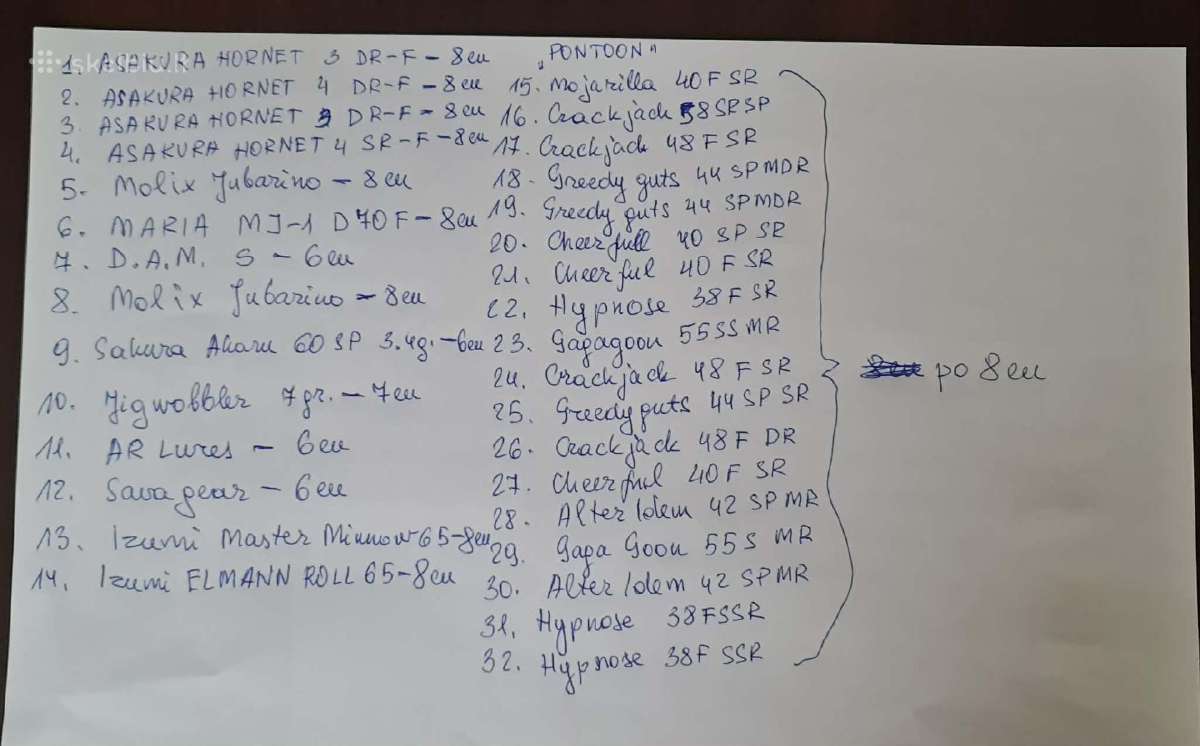 1. ASAKURA HORNET 3 DR-F - 8eu
2. ASAKURA HORNET 4 DR-F - 8eu
3. ASAKURA HORNET 3 DR-F - 8eu
4. ASAKURA HORNET 4 SR-F - 8eu
5. Molix Jubarino - 8eu
6. MARIA MJ-1 D70F - 8eu
7. D.A.M. S - 6eu
8. Molix Jubarino - 8eu
9. Sakura Akaru 60 SP 3.4g. - 6eu
10. Jigwobbler 7gr. - 7eu
11. AR Lures - 6eu
12. Savagear - 6eu
13. Izumi Master Minnow 65 - 8eu
14. Izumi ELMANN ROLL 65 - 8eu
„PONTOON"
15. Mojarilla 40F SR
16. Crackjack 58 SR SP
17. Crackjack 48 F SR
18. Greedy guts 44 SP MDR
19. Greedy guts 44 SP MDR
20. Cheerfull 40 SP SR
21. Cheerful 40 F SR
22. Hypnose 38F SR
23. Gagagoon 55SS MR
24. Crackjack 48 F SR
25. Greedyguts 44 SP SR
26. Crackjack 48 F DR
27. Cheerful 40 F SR
28. Alter Idem 42 SP MR
29. Gaga Goon 55S MR
30. Alter Idem 42 SPMR
31. Hypnose 38FSSR
32. Hypnose 38F SSR
po 8eu